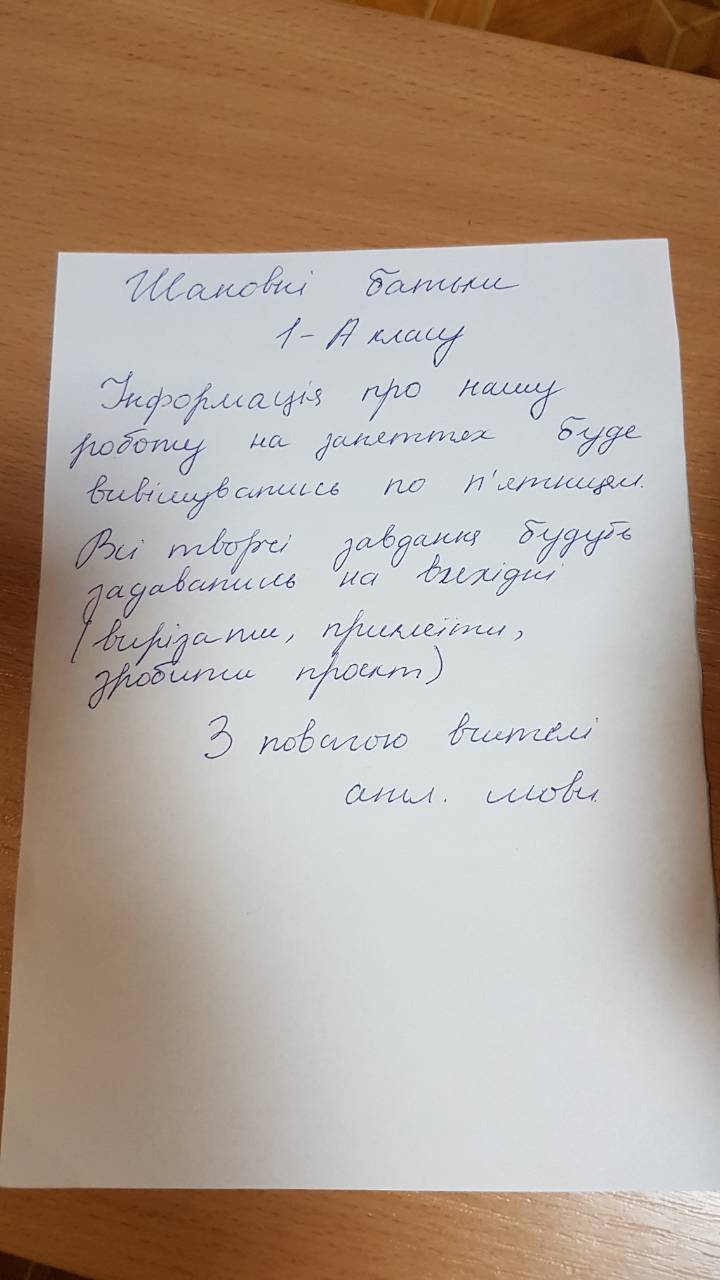 Шановні батьки
1-А класу
Інформація про нашу
роботу на заняттях буде
вивішуватись по п'ятницям.
Всі творчі завдання будуть
задаватись на вихідні
(вирізати, приклеїти,
зробити проєкт)
З повагою вчителі
англ. мови.